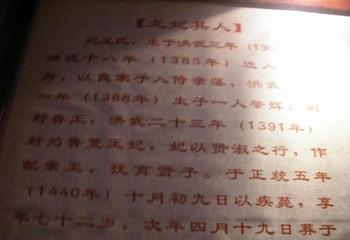 【戈妃其人】
妃戈氏，生于洪武三年（13
洪武十八年（1385年）选入
府，以良家子入侍亲藩，洪武
一年（1388年）生子一人肇辉，
封鲁王，洪武二十三年（1391年）
封为鲁荒王妃，妃以贤淑之行，作
配亲王，抚育贤子。于正统五年
（1440年）十月初九日以疾薨，享
年七十二岁，次年四月十九日葬于